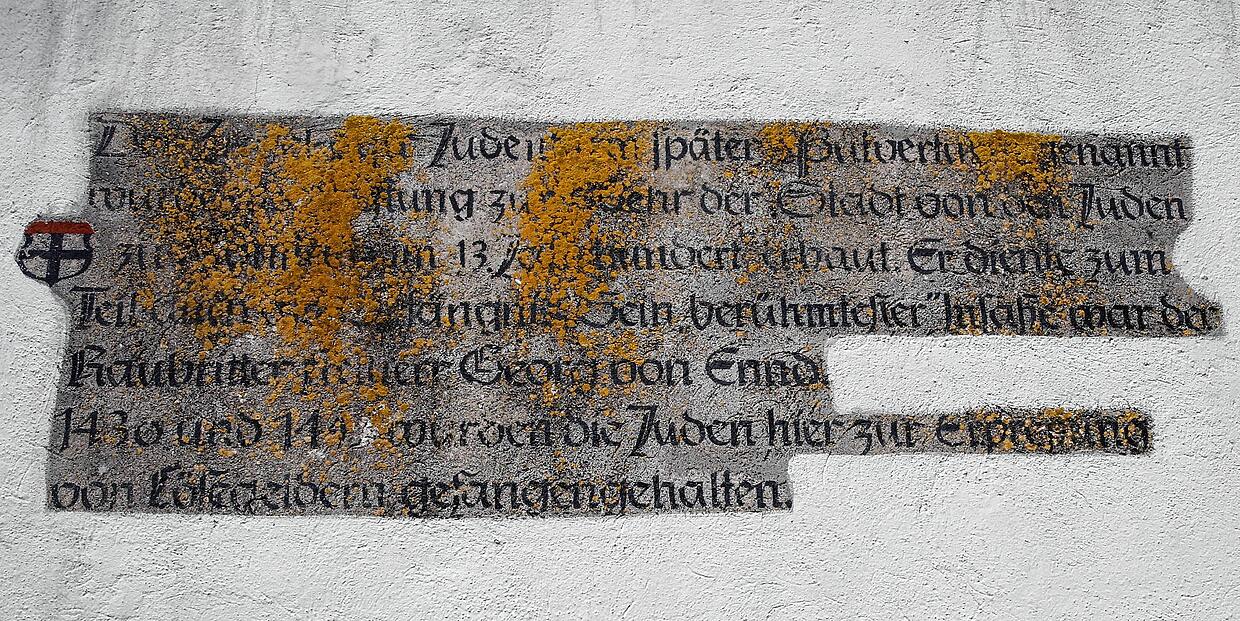 Juden später Pulverturm genannt
wurde zur Wehr der Stadt von den Juden
im 13. Jahrhundert erbaut. Er diente zum
Teil auch als Gefängnis. Sein berühmtester "Insasse war der
Raubritter Georg von Ennd.
1430 und wurden die Juden hier zur Erpressung
von Lösegeldern gefangengehalten.